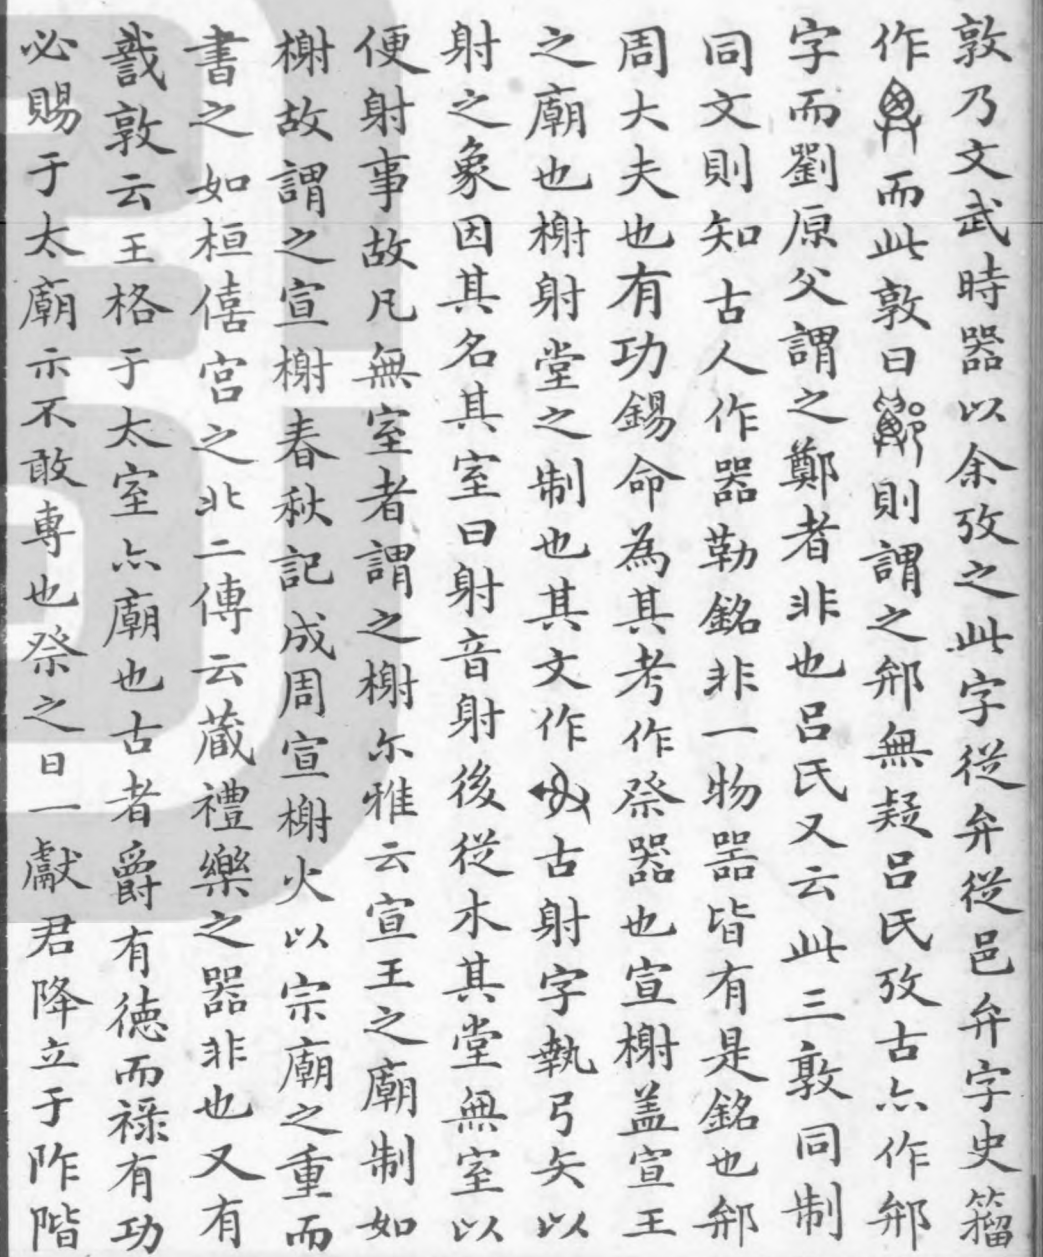 敦乃文武時器以余攷之此字從弁從邑弁字史籀
作而此敦曰則謂之䢏無疑呂氏攷古亦作䢏
字而劉原父謂之鄭者非也呂氏又云此三敦同制
同文則知古人作器勒銘非一物器皆有是銘也䢏
周大夫也有功錫命為其考作祭器也宣榭盖宣王
之廟也榭射堂之制也其文作古射字執弓矢以
射之象因其名其室曰射音射後從木其堂無室以
便射事故凡無室者謂之榭尔雅云宣王之廟制如
榭故謂之宣榭春秋記成周宣榭火以宗廟之重而
書之如桓僖宮之北二傳云藏禮樂之器非也又有
敦云王格于太室亦廟也古者爵有德而禄有功
必賜于太廟示不敢專也祭之日一獻君降立于阼階